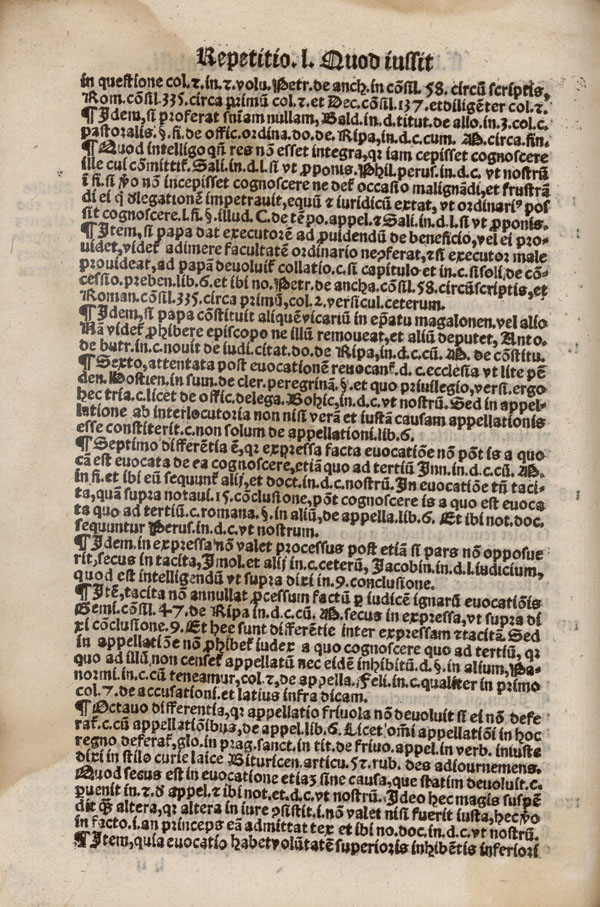 Repetitio. l. Quod iussit
in questione col. ⁊. in. 2. volu. Petr. de anch. in cōsil. 58. circū scriptis,
Rom. cōsil. 335. circa primū col. 2. et Dec. cōsil. 137. et diligēter col. 2.
¶ Idem, si proferat sniam nullam, Bald. in. d. titut. de allo. in. 3. col. c.
pastoralis. §. fi. de offic. ordina. do. de. Ripa, in. d. c. cum. M. circa. fin.
¶ Quod intelligo qn̄ res nō esset integra, qr iam cepisset cognoscere
ille cui cōmittit. Sali. in. d. l. si vt ꝓponis. Phil. perus. in. d. c. vt nostrū
ī fi. si ꝟo nō incepisset cognoscere ne det occasio malignādi, et frustrā
di ei q̄ delegationē impetrauit, equū ⁊ iuridicū extat, vt ordinari⁹ pos
sit cognoscere. l. fi. §. illud. C. de tēpo. appel. ⁊ Sali. in. d. l. si vt ꝓponis.
¶ Item, si papa dat executorē ad ꝓuidendū de beneficio, vel ei pro-
uidet, videt adimere facultatē ordinario ne ꝯferat, ⁊ si executor male
prouideat, ad papā deuoluit collatio. c. si capitulo et in. c. si soli, de cō-
cessio. preben. lib. 6. et ibi no. Petr. de ancha. cōsil. 58. circūscriptis, et
Roman. cōsil. 335. circa primū, col. 2. versicul. ceterum.
¶ Idem, si papa cōstituit aliquē vicariū in ep̄atu magalonen. vel alio
Nā videt ꝓhibere episcopo ne illū remoueat, et aliū deputet, Anto.
de butr. in. c. nouit de iudi. citat. do. de Ripa, in. d. c. cū. M. de cōstitu.
¶ Sexto, attentata post euocationē reuocant. d. c. ecclesia vt lite pē
den. Hostien. in sum. de cler. peregrinā. §. et quo priuilegio, versi. ergo
hec tria. c. licet de offic. delega. Bohic, in. d. c. vt nostrū. Sed in appel-
latione ab interlocutoria non nisi verā et iustā causam appellationis
esse constiterit. c. non solum de appellationi. lib. 6.
¶ Septimo differētia ē, qr expressa facta euocatiōe nō pōt is a quo
cā est euocata de ea cognoscere, etiā quo ad tertiū Inn. in. d. c. cū. M.
in fi. et ibi eū sequunt alij, et doct. in. d. c. nostrū. In euocatiōe tn̄ taci-
ta, quā supra notaui. 15. cōclusione, pōt cognoscere is a quo est euoca
ta quo ad tertiū. c. romana. §. in aliū, de appella. lib. 6. Et ibi not. doc.
sequuntur Perus. in. d. c. vt nostrum.
¶ Idem. in expressa nō valet processus post etiā si pars nō opposue
rit, secus in tacita, Imol. et alij in. c. ceterū, Jacobin. in. d. l. iudicium,
quod est intelligendū vt supra dixi in. 9. conclusione.
¶ Itē, tacita nō annullat ꝓcessum factū ꝑ iudicē ignarū euocatiōis
Gemi. cōsil. 47. de Ripa in. d. c. cū. M. secus in expressa, vt supra di
xi cōclusione. 9. Et hee sunt differētie inter expressam ⁊ tacitā. Sed
in appellatiōe nō ꝓhibet iudex a quo cognoscere quo ad tertiū, qr
quo ad illū, non censet appellatū nec eidē inhibitū. d. §. in alium, Pa-
normi. in. c. cū teneamur, col. 2, de appella. Feli. in. c. qualiter in primo
col. 7. de accusationi. et latius infra dicam.
¶ Octauo differentia, qr appellatio friuola nō deuoluit si ei nō defe
rat. c. cū appellationibus, de appel. lib. 6. Licet omī appellatiōi in hoc
regno deferat, glo. in prag. sanct. in tit. de friuo. appel. in verb. iniuste
dixi in stilo curie laice Bituricen. articu. 57. rub. des adiournemens.
Quod secus est in euocatione etiaz sine causa, que statim deuoluit. c.
ꝑuenit in. 2. d appel. ⁊ ibi not. et. d. c. vt nostrū. Ideo hec magis suspē
dit q̄ altera, qr altera in iure ꝯsistit. i. nō valet nisi fuerit iusta, hec ꝟo
in facto. i. an princeps eā admittat tex et ibi no. doc. in. d. c. vt nostrū.
¶ Item, quia euocatio habet volūtatē superioris inhibētis inferiori